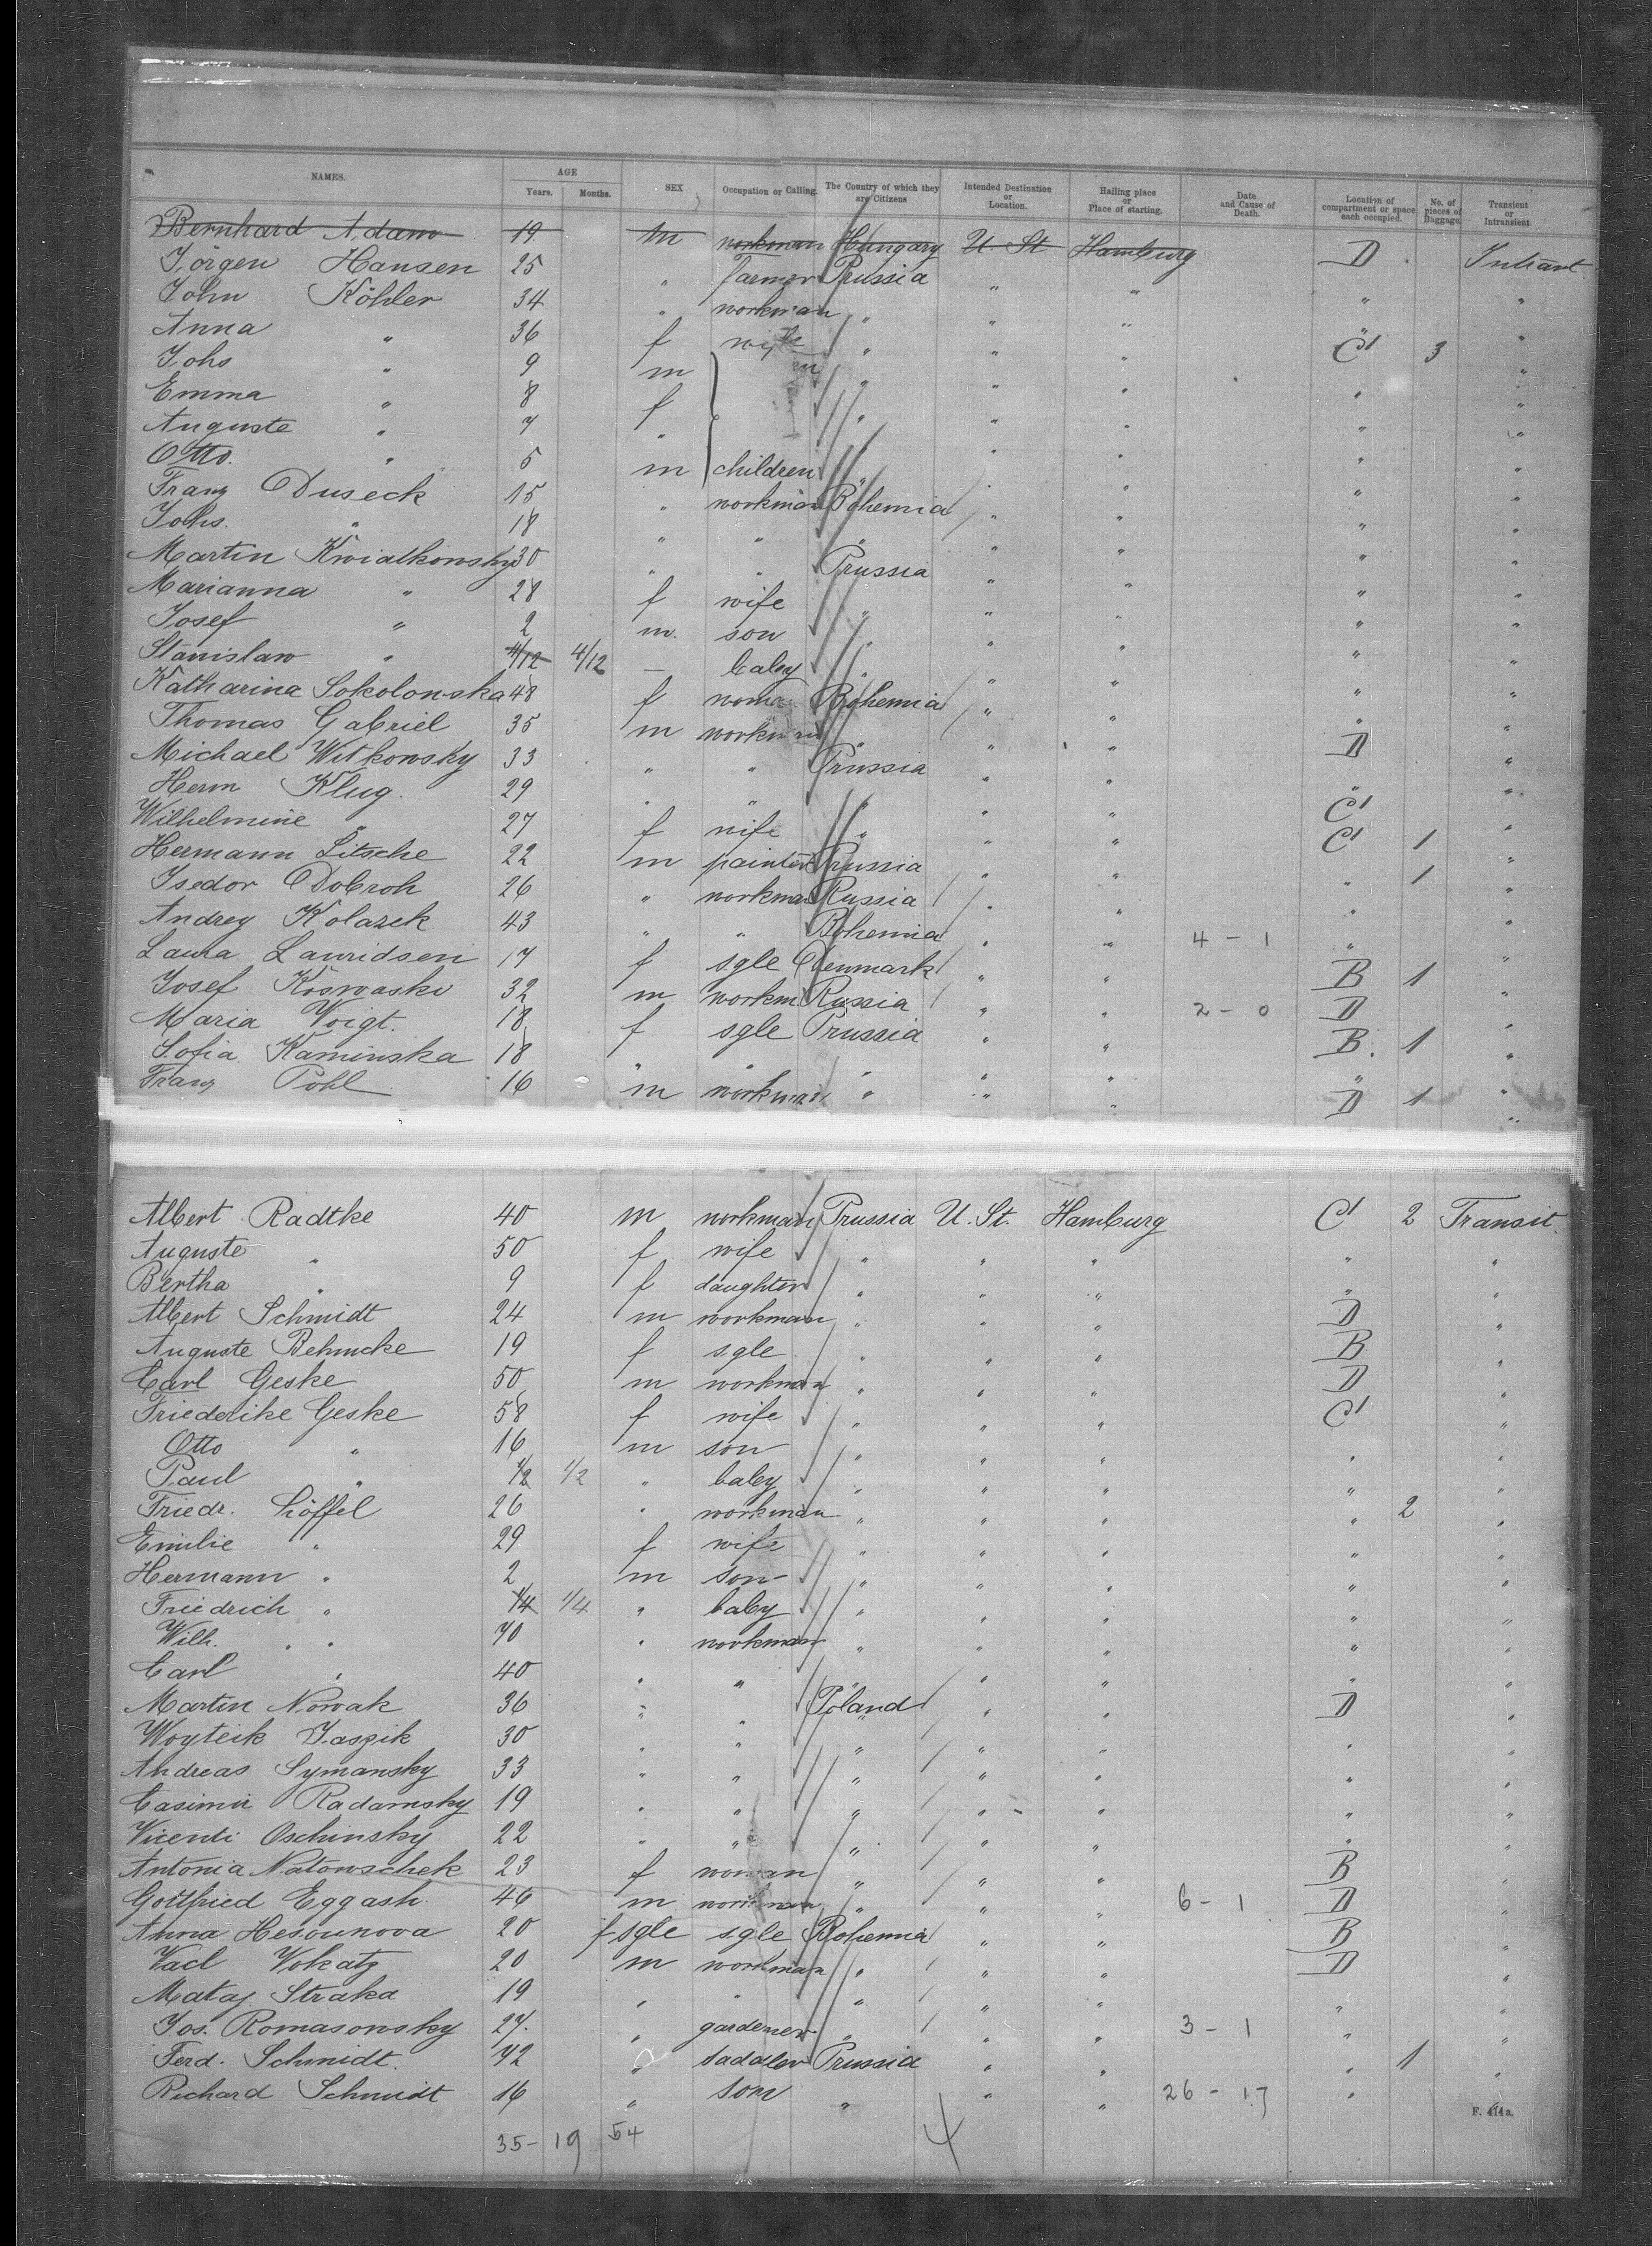 NAMES. AGE Years. Months. SEX Occupation or Calling. The Country of which they are Citizens Intended Destination or Location. Hailing place or Place of starting. Date and Cause of Death. Location of compartment or space each occupied. No. of pieces of Baggage. Transient or Intransient.
Bernhard Adam 19 m workman Hungary U. St Hamburg D Intrant
Jörgen Hansen 25 " farmer Prussia " " " "
John Köhler 34 " workman " " " " "
Anna " 36 f wife " " " C 3 "
Johs " 9 m " " " " "
Emma " 8 f " " " " "
Auguste " 7 " " " " " "
Otto. " 5 m children " " " " "
Franz Duseck 15 " workman Bohemia " " " "
Johs. " 18 " " " " " " "
Martin Kwiatkowsky 30 " " Prussia " " " "
Marianna " 28 f wife " " " " "
Josef " 2 m. son " " " " "
Stanislaw " 4/12 4/12 — baby " " " " "
Katharina Sokolonska 48 f woman Bohemia " " " "
Thomas Gabriel 35 m workman " " " D "
Michael Witkowsky 33 " " Prussia " " " "
Herm Klug. 29 " " " " " C "
Wilhelmine " 27 f wife " " " C 1 "
Hermann Litsche 22 m painter Prussia " " " 1 "
Isedor Dobroh 26 " workman Russia " " " "
Andrey Kolazek 43 " " Bohemia " " 4 - 1 " "
Laura Lauridsen 17 f sgle Denmark " " B 1 "
Josef 32 m workm Russia " " 2 - 0 D "
Maria Voigt. 18 f sgle Prussia " " B. 1 "
Sofia Kaminska 18 " " " " " " "
Franz Pohl 16 m workman " " " D 1 "
Albert Radtke 40 m workman Prussia U. St. Hamburg C 2 Transit.
Auguste " 50 f wife " " " " "
Bertha " 9 f daughter " " " " "
Albert Schmidt 24 m workman " " " D "
Auguste Behmcke 19 f sgle " " " B "
Carl Geske 50 m workman " " " D "
Friederike Geske 58 f wife " " " C "
Otto " 16 m son " " " " "
Paul " 1/2 1/2 " baby " " " " "
Friedr. Löffel 26 " workman " " " " 2 "
Emilie " 29 f wife " " " " "
Hermann " 2 m son " " " " "
Friedrich " 1/4 1/4 " baby " " " " "
Wilh. " 70 " workman " " " " "
Carl " 40 " " " " " " "
Martin Nowak 36 " " Poland " " D "
Woyteik Jaszik 30 " " " " " " "
Andreas Symansky 33 " " " " " " "
Casimir Radamsky 19 " " " " " " "
Vicenti Oschinsky 22 " " " " " " "
Antonia Natowschek 23 f woman " " " B "
Gottfried Eggash. 46 m workman " " " 6 - 1 D "
Anna Hesounova 20 f sgle sgle Bohemia " " B "
Vacl Vokatz 20 m workman " " " D "
Mataj Straka 19 " " " " " " "
Jos. Romasowsky 27. " gardener " " " 3 - 1 " "
Ferd. Schmidt. 42 " saddler Prussia " " " 1 "
Richard Schmidt 16 " son " " " 26 - 17 " "
F. 414a.
35 - 19 54